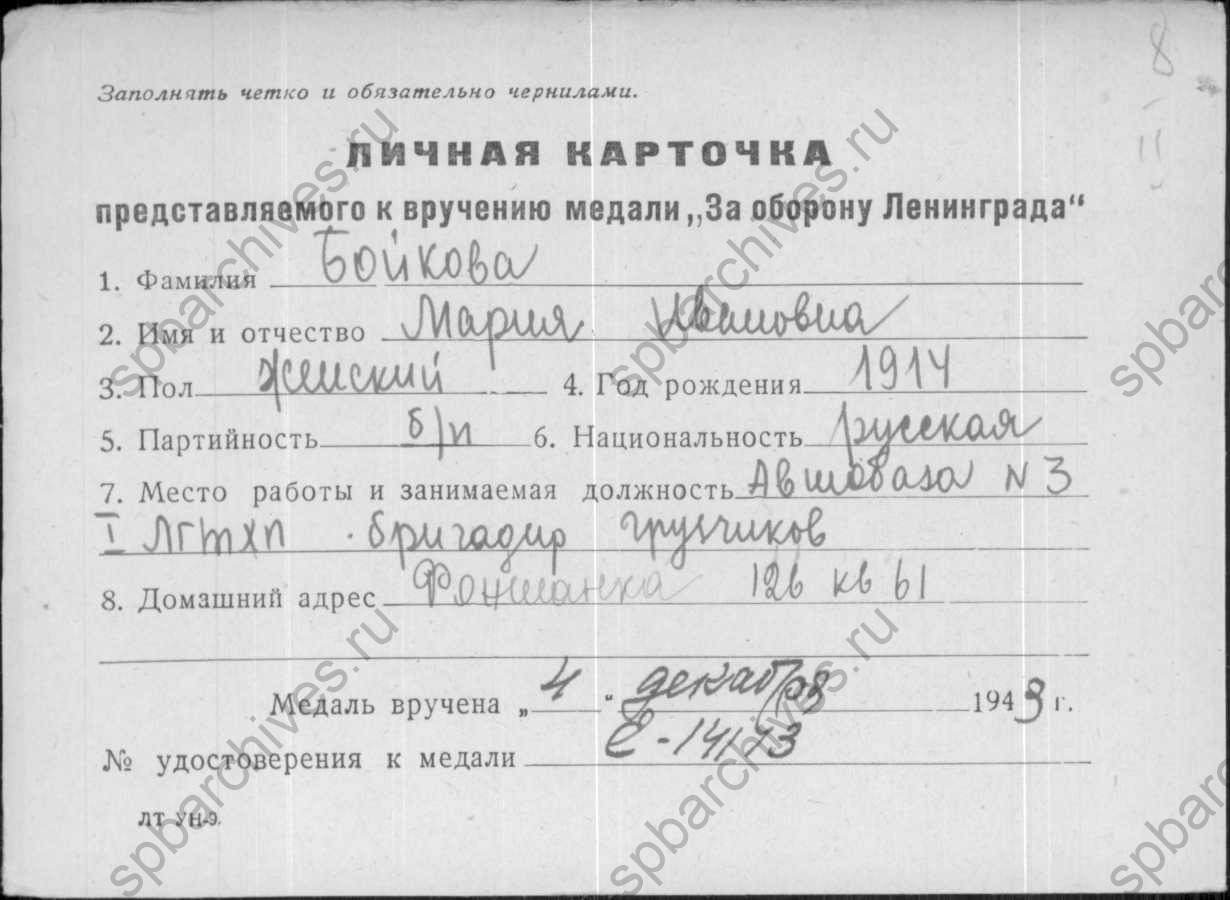 8
11
Заполнять четко и обязательно чернилами.
ЛИЧНАЯ КАРТОЧКА
представляемого к вручению медали „За оборону Ленинграда“
1. Фамилия Бойкова
2. Имя и отчество Мария Ивановна
3. Пол Женский 4. Год рождения 1914
5. Партийность б/п 6. Национальность русская
7. Место работы и занимаемая должность Автобаза N 3
I ЛГТХП бригадир грузчиков
8. Домашний адрес Фонтанка 126 кв 61
Медаль вручена „ 4 “ декабря 1943 г.
№ удостоверения к медали Е-14173
ЛТ УН-9.
spbarchives.ru
spbarchives.ru
spbarchives.ru
spbarchives.ru
spbarchives.ru
spbarchives.ru